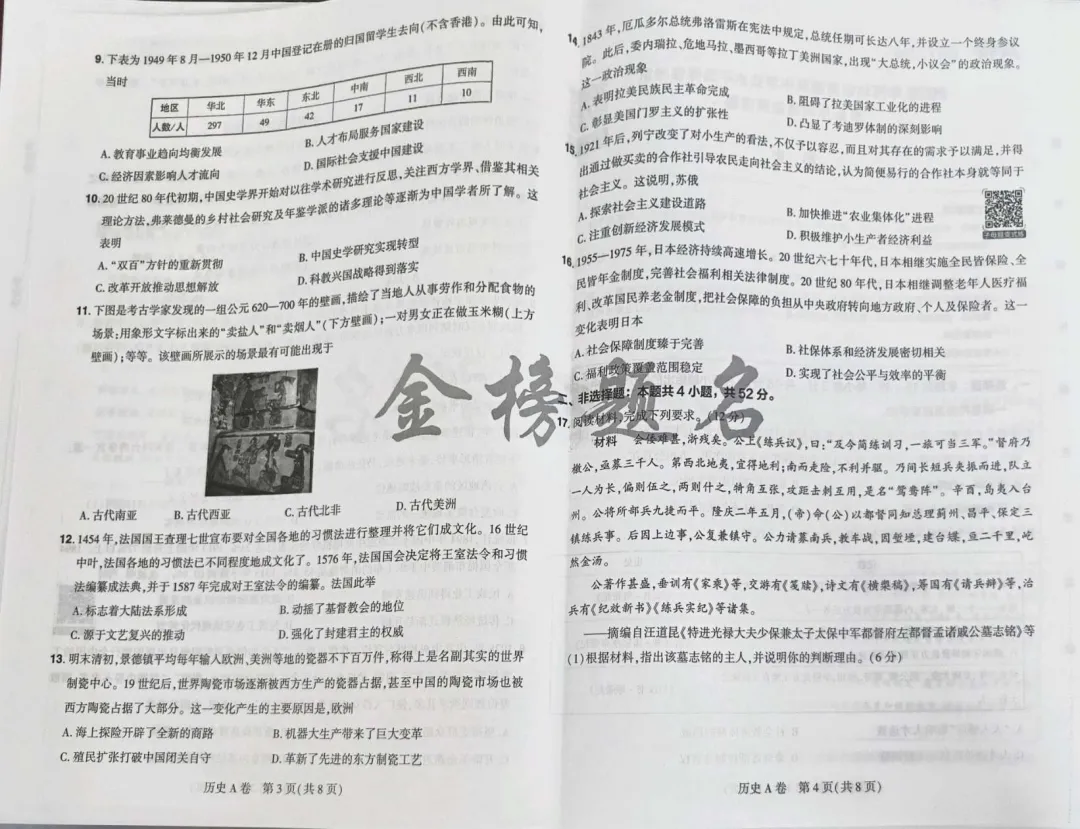 9. 下表为1949年8月—1950年12月中国登记在册的归国留学生去向(不含香港)。由此可知,
当时
地区 华北 华东 东北 中南 西北 西南
人数/人 297 49 42 17 11 10
A. 教育事业趋向均衡发展 B. 人才布局服务国家建设
C. 经济因素影响人才流向 D. 国际社会支援中国建设
10. 20世纪80年代初期,中国史学界开始对以往学术研究进行反思,关注西方学界、借鉴其相关
理论方法,弗莱德曼的乡村社会研究及年鉴学派的诸多理论等逐渐为中国学者所了解。这
表明
A. “双百”方针的重新贯彻 B. 中国史学研究实现转型
C. 改革开放推动思想解放 D. 科教兴国战略得到落实
11. 下图是考古学家发现的一组公元620—700年的壁画,描绘了当地人从事劳作和分配食物的
场景;用象形文字标出来的“卖盐人”和“卖烟人”(下方壁画);一对男女正在做玉米糊(上方
壁画);等等。该壁画所展示的场景最有可能出现于
A. 古代南亚 B. 古代西亚 C. 古代北非 D. 古代美洲
12. 1454年,法国国王查理七世宣布要对全国各地的习惯法进行整理并将它们成文化。16世纪
中叶,法国各地的习惯已不同程度地成文化了。1576年,法国国会决定将王室法令和习惯
法编纂成法典,并于1587年完成对王室法令的编纂。法国此举
A. 标志着大陆法系形成 B. 动摇了基督教会的地位
C. 源于文艺复兴的推动 D. 强化了封建君主的权威
13. 明末清初,景德镇平均每年输入欧洲、美洲等地的瓷器不下百万件,称得上是名副其实的世界
制瓷中心。19世纪后,世界陶瓷市场逐渐被西方生产的瓷器占据,甚至中国的陶瓷市场也被
西方陶瓷占据了大部分。这一变化产生的主要原因是,欧洲
A. 海上探险开辟了全新的商路 B. 机器大生产带来了巨大变革
C. 殖民扩张打破中国闭关自守 D. 革新了先进的东方制瓷工艺
历史A卷 第3页(共8页)
14. 1843年,厄瓜多尔总统弗洛雷斯在宪法中规定,总统任期可长达八年,并设立一个终身参议
院。此后,委内瑞拉、危地马拉、墨西哥等拉丁美洲国家,出现“大总统,小议会”的政治现象。
这一政治现象
A. 表明拉美民族民主革命完成 B. 阻碍了拉美国家工业化的进程
C. 彰显美国门罗主义的扩张性 D. 凸显了考迪罗体制的深刻影响
15. 1921年后,列宁改变了对小生产的看法,不仅予以容忍,而且对其存在的需求予以满足,并得
出通过做买卖的合作社引导农民走向社会主义的结论,认为简便易行的合作社本身就等同于
社会主义。这说明,苏俄
A. 探索社会主义建设道路 B. 加快推进“农业集体化”进程
C. 注重创新经济发展模式 D. 积极维护小生产者经济利益
16. 1955—1975年,日本经济持续高速增长。20世纪六七十年代,日本相继实施全民皆保险、全
民皆年金制度,完善社会福利相关法律制度。20世纪80年代,日本相继调整老年人医疗福
利、改革国民养老金制度,把社会保障的负担从中央政府转向地方政府、个人及保险者。这一
变化表明日本
A. 社会保障制度臻于完善 B. 社保体系和经济发展密切相关
C. 福利政策覆盖范围稳定 D. 实现了社会公平与效率的平衡
二、非选择题:本题共4小题,共52分。
17. 阅读材料,完成下列要求。(12分)
材料 会倭难甚,浙残矣。公上《练兵议》,曰:“原今简练训习,一旅可当三军。”督府乃
檄公,亟募三千人。第西北地夷,宜得地利;南而走险,不利并驱。乃间长短兵夹振而进,队立
一人为长,偏则伍之,两则什之,犄角互张,攻距击刺互用,是名“鸳鸯阵”。辛酉,岛夷入台
州。公将所部兵九捷而平。隆庆二年五月,(帝)命(公)以都督同知总理蓟州、昌平、保定三
镇练兵事。后因上边事,公复兼镇守。公力请募南兵,教车战,固壁垒,建台堠,亘二千里,屹
然金汤。
公著作甚盛,垂训有《家乘》等,交游有《笺牍》,诗文有《横槊稿》,筹国有《请兵辩》等,治
兵有《纪效新书》《练兵实纪》等诸集。
——摘编自汪道昆《特进光禄大夫少保兼太子太保中军都督府左都督孟诸戚公墓志铭》等
(1)根据材料,指出该墓志铭的主人,并说明你的判断理由。(6分)
历史A卷 第4页(共8页)
金榜题名